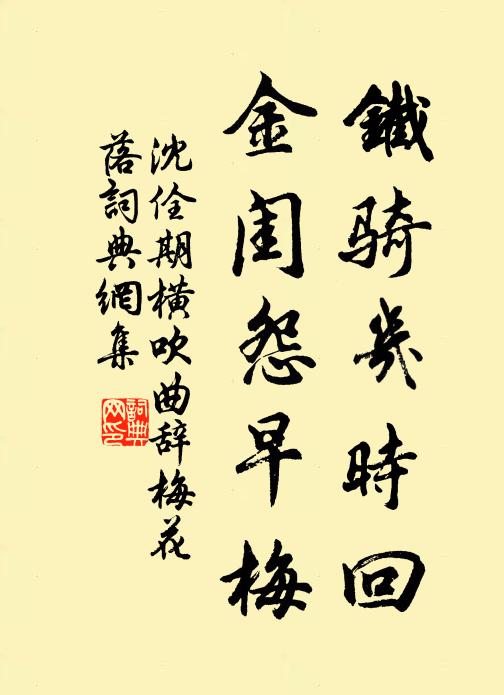 鐵騎幾時回
金閨怨早梅
沈佺期橫吹曲辭梅花
落詞典網集
詞典网印